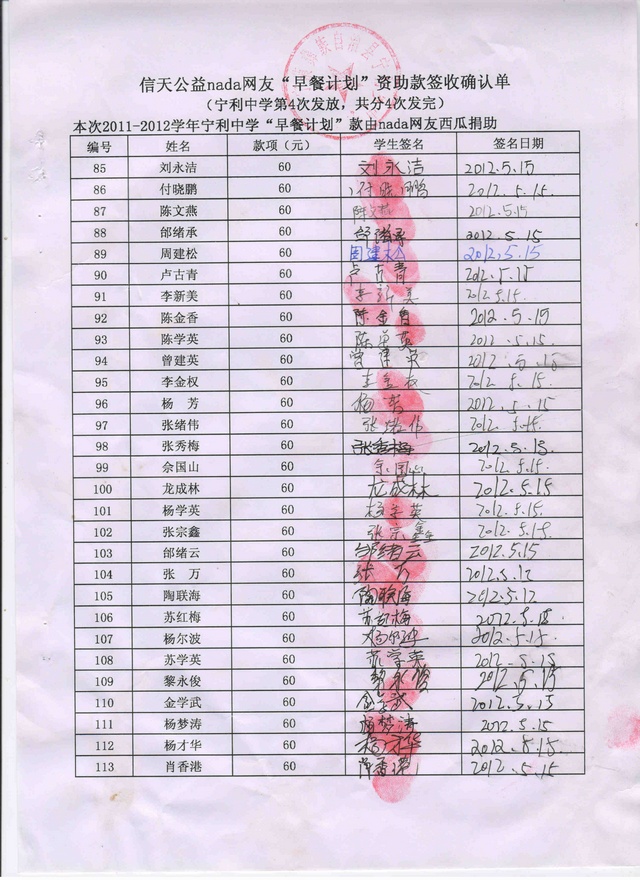 信天公益nada网友“早餐计划”资助款签收确认单
（宁利中学第4次发放，共分4次发完）
本次2011-2012学年宁利中学“早餐计划”款由nada网友西瓜捐助
编号 姓名 款项（元） 学生签名 签名日期
85 刘永洁 60 刘永洁 2012.5.15
86 付晓鹏 60 付晓鹏 2012.5.15
87 陈文燕 60 陈文燕 2012.5.15
88 邰绪承 60 2012.5.15
89 周建松 60 周建松 2012.5.15
90 卢古青 60 卢古青 2012.5.15
91 李新美 60 李新美 2012.5.15
92 陈金香 60 陈金香 2012.5.15
93 陈学英 60 陈学英 2012.5.15
94 曾建英 60 2012.5.15
95 李金权 60 李金权 2012.5.15
96 杨 芳 60 杨芳 2012.5.15
97 张绪伟 60 张绪伟 2012.5.15
98 张秀梅 60 张秀梅 2012.5.15
99 佘国山 60 佘国山 2012.5.15
100 龙成林 60 龙成林 2012.5.15
101 杨学英 60 杨学英 2012.5.15
102 张宗鑫 60 张宗鑫 2012.5.15
103 邰绪云 60 邰绪云 2012.5.15
104 张 万 60 张万 2012.5.12
105 陶联海 60 陶联海 2012.5.12
106 苏红梅 60 苏红梅 2012.5.15
107 杨尔波 60 2012.5.15
108 苏学英 60 苏学英 2012.5.15
109 黎永俊 60 黎永俊 2012.5.15
110 金学武 60 金学武 2012.5.15
111 杨梦涛 60 杨梦涛 2012.5.15
112 杨才华 60 杨才华 2012.5.15
113 肖香港 60 肖香港 2012.5.15